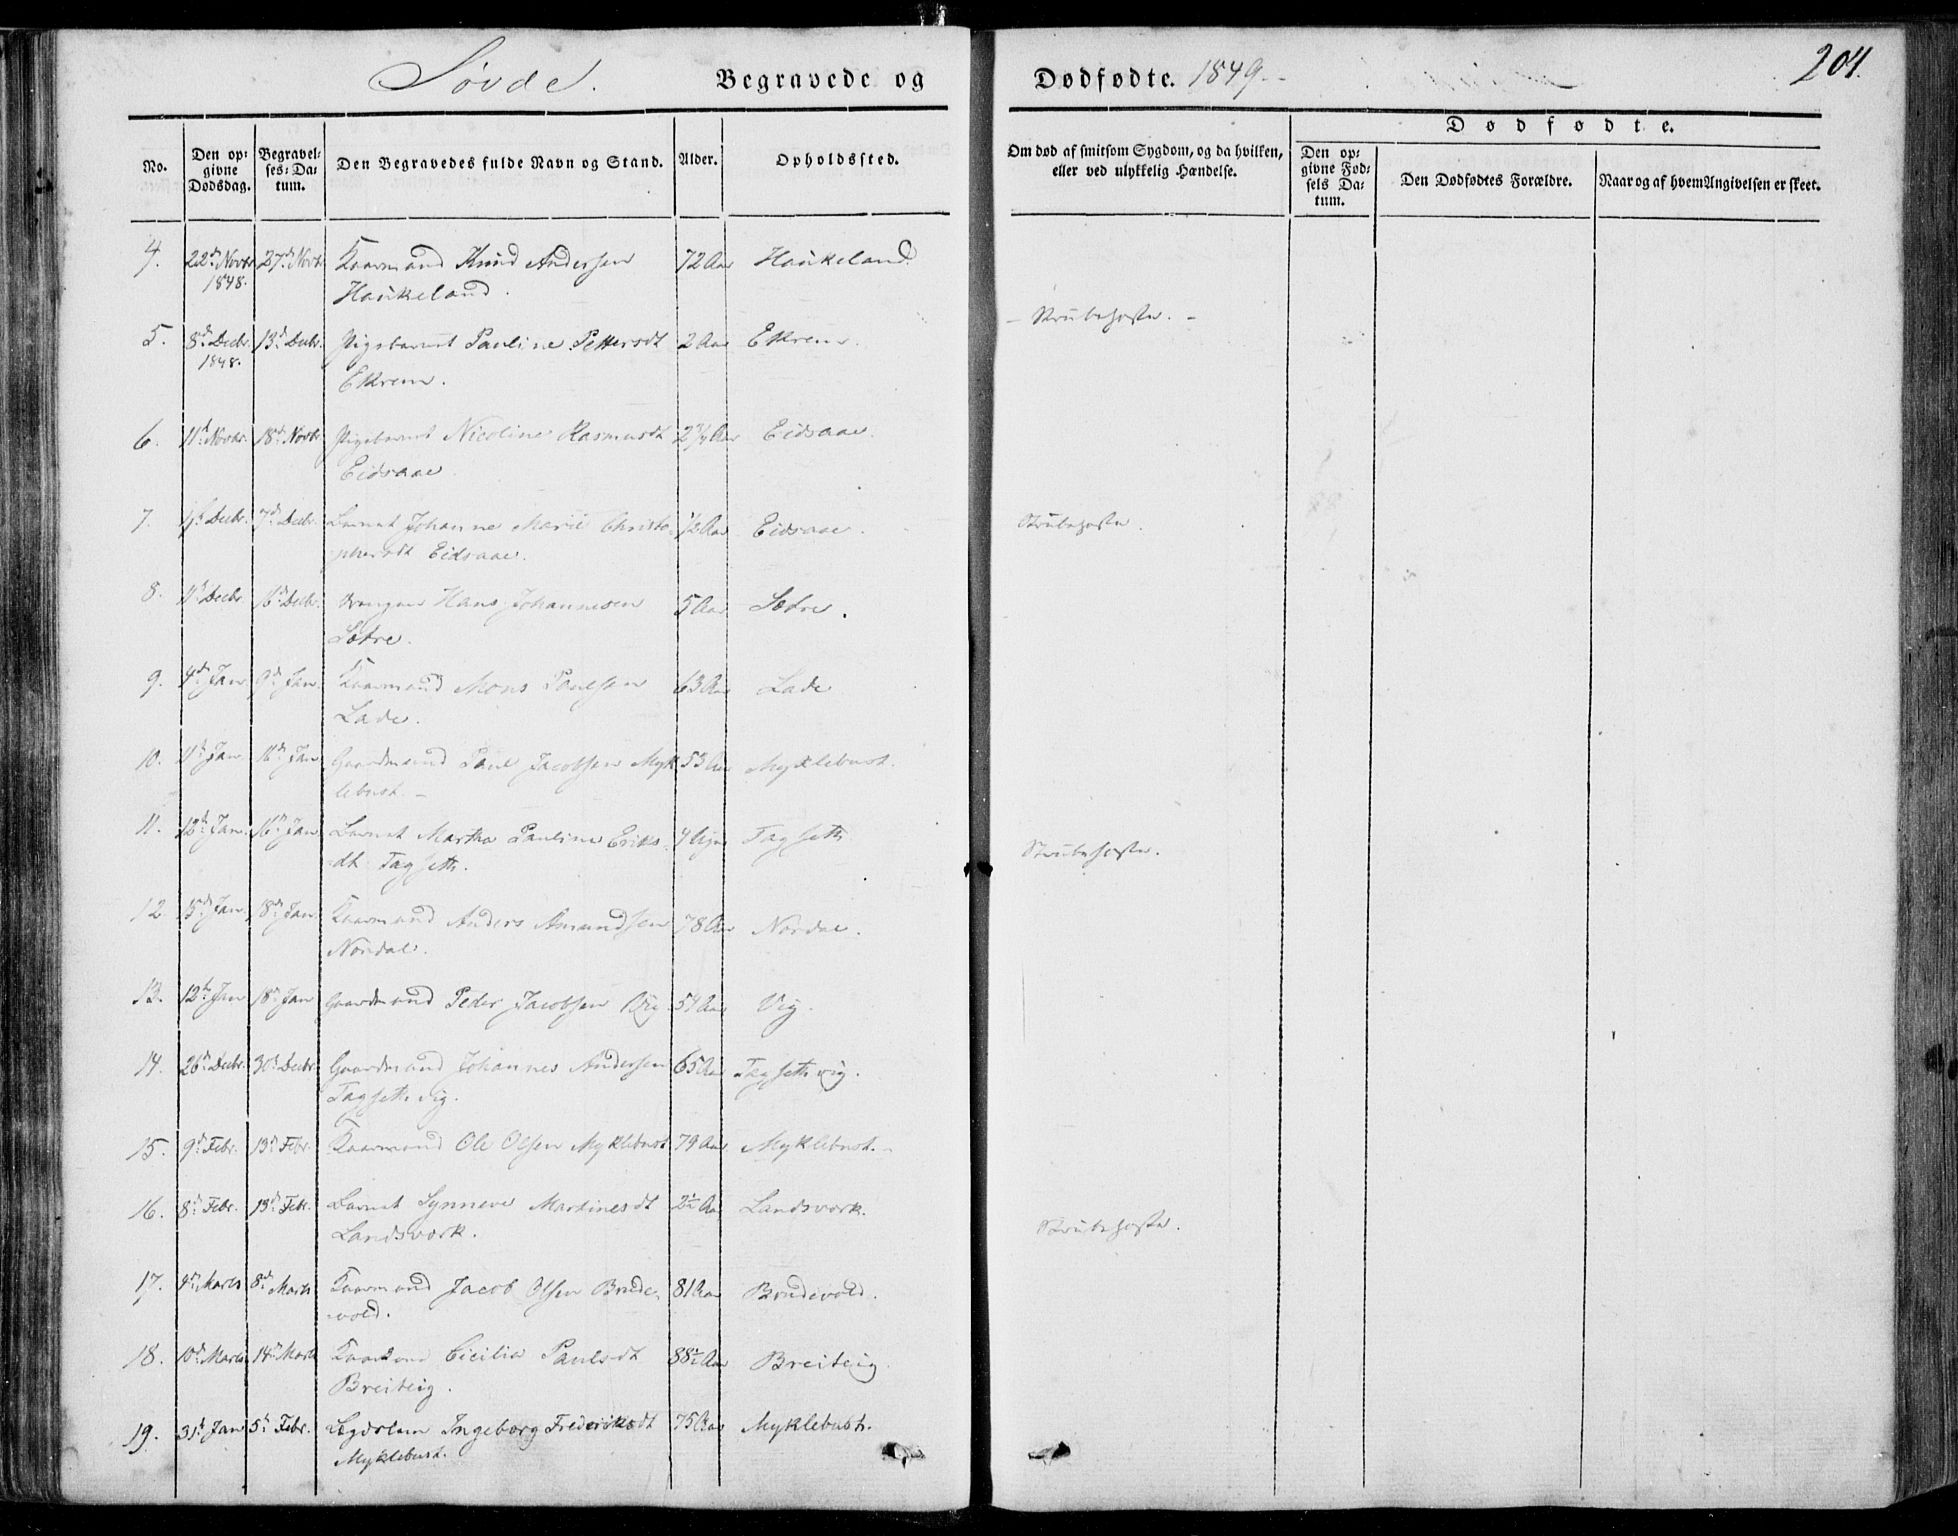 Søvde. Begravede og Dødfødte. 1849. 204.
No. Den opgivne Dødsdag. Begravelses-Datum. Den Begravedes fulde Navn og Stand. Alder. Opholdssted. Om død af smitsom Sygdom, og da hvilken, eller ved ulykkelig Hændelse. Dødfødte. Den opgivne Fødsels Datum. Den Dødfødtes Forældre. Naar og af hvem Angivelsen er skeet.
4. 22d Novbr 27d Novbr Kaarmand Knud Andersen 72 Aar Haukeland.
1848. Haukeland.
5. 8d Decbr. 13d Decbr. Pigebarnet Pauline Pettersdt 2 Aar Ekrem. - Strubehoste. -
1848. Ekrem.
6. 11d Novbr. 18d Novbr Pigebarnet Nicoline Rasmusdt Aar Eidsaae.
Eidsaae
7. Decbr. 7d Decbr. Barnet Johanne Marie Christo- ½ Aar Eidsaae. Strubehoste.
phersdt Eidsaae.
8. 11d Decbr. 16d Decbr. Drengen Hans Johannesen 5 Aar Sætre.
Sætre.
9. 4d Jan 9d Jan. Kaarmand Mons Paulsen 63 Aar Lade
Lade.
10. 11d Jan 16d Jan Gaardmand Paul Jacobsen Myk- 53 Aar Myklebust.
lebust. -
11. 12d Jan. 16d Jan Barnet Martha Pauline Eriks- Tagseth
dt Tagseth. Strubehoste.
12. 15d Jan 18d Jan Kaarmand Anders Amundsen 78 Aar Nordal.
Nordal.
13. 12t Jan 18d Jan Gaardmand Peder Jacobsen Vig 54 Aar Vig.
14. 26d Decbr. 30d Decbr Gaardmand Johannes Andersen 65 Aar Tagsethvig.
Tagsethvig.
15. 9d Febr. 13d Febr. Kaarmand Ole Olsen Myklebust 79 Aar Myklebust. -
16. 8d Febr. 13d Febr. Barnet Synneve Martinesdt 2½ Aar Landsværk. Strubehoste.
Landsværk.
17. 4d Marts 8d Marts Kaarmand Jacob Olsen Brude- 81 Aar Brudevold.
vold.
18. 10d Marts 14d Marts Cicilia Paulsdt 88½ Aar Breiteig.
Breiteig.
19. 31t Jan 5t Febr. Lægdslem Ingeborg Frederiksdt 75 Aar Myklebust.
Myklebust.